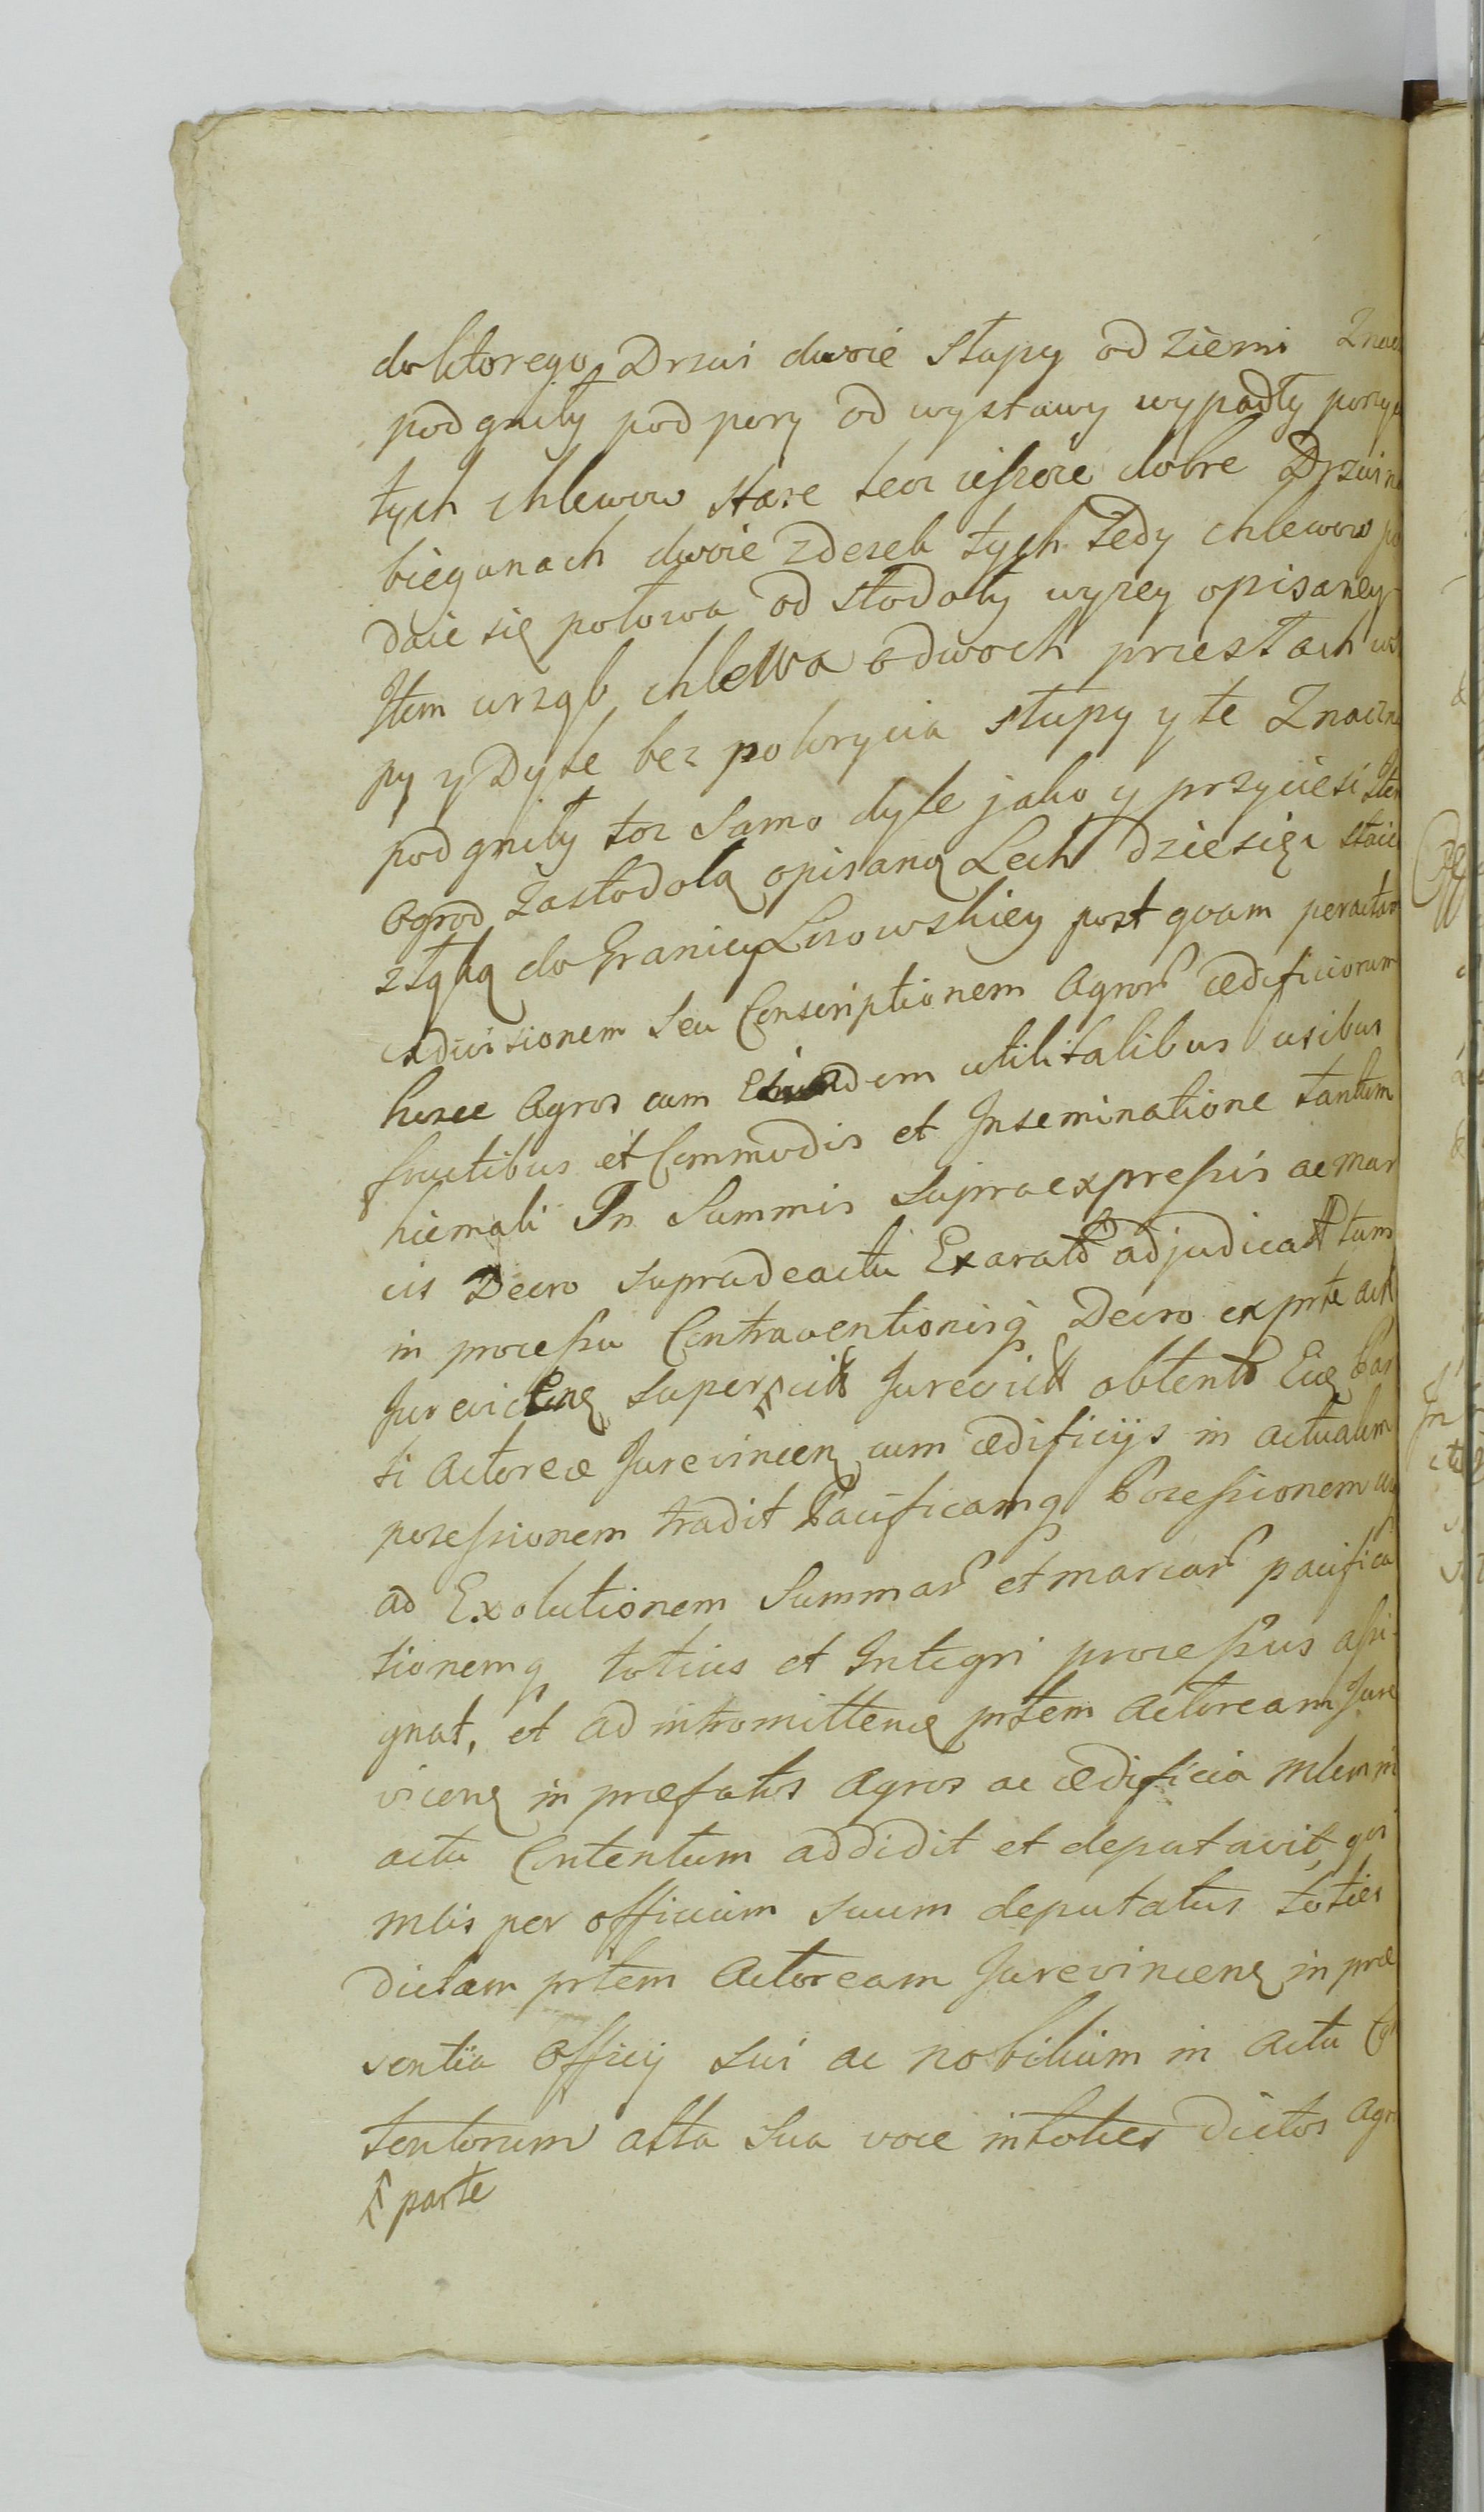 do ktorego Drzwi dwoie słupy od ziemi Znacz
podgniły podpory od wystawy wypadły poszyc
tych chlewow stare lecz ieszcze dobre Drzwi n
biegunach dwoie zdesek tych tedy chlewow po
daie się połowa od stodoły wyzey opisaney
Item wrzqb chlewa o dwoch przesłach
py y Dyle bez pokrycia słupy y te Znaczn
podgniły toz samo dyle jako y przyciesi Item
ogrod Zastodolą opisaną Lech dziesięc staie
złąką do Granicy Lisowskiey postquam peractam
exdivisionem seu Conscriptionem Agror ædificiorum
hosce Agros cum utilitatibus usibus
fructibus et Commodis et Inseminatione tantum
hiemali In Summis supraexpressis ac mar
cis Decro supradeactu Exarato adjudicatt tum
in processu Contraventionisq Decro exprte act
Jurevicenq super cit Jurevict obtento Eiq Par
ti Actoreæ Jurevincenq cum ædificijs in actualem
posessionem tradit Pacificamq Posessionem
ad Exolutionem Summar et marcar pacifica
tionemq totius et Integri processus assi-
gnat, et ad intromittenq prtem Actoream Jure
vicenq in præfatos Agros ac ædificia mlem in
actu Contentum addidit et deputavit, qui
mlis per officium suum deputatus toties
dictam prtem Actoream Jurevincenq in præ
sentia Officij sui ac nobilium in actu Con
tentorum alta sua voce intoties dictos Agr
parte